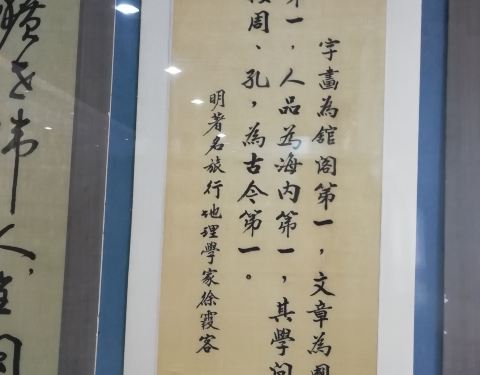 字畫為舘阁第一，文章為國
第一，人品為海内第一，其學問
周、孔，為古今第一。
明著名旅行地理學家徐霞客